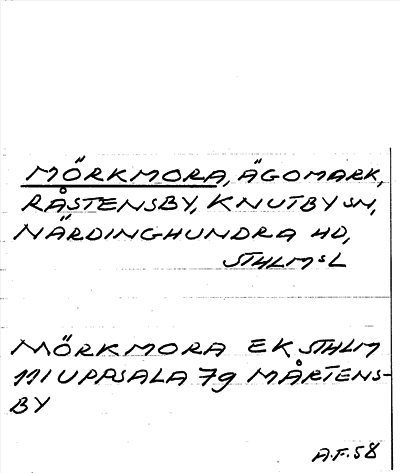 MÖRKMORA, ÄGOMARK,
RÅSTENSBY, KNUTBY SN,
NÄRDINGHUNDRA HD,
STHLMS L
MÖRKMORA EK, STHLM
111 UPPSALA 7g MÅRTENS-
BY
A.F. 58